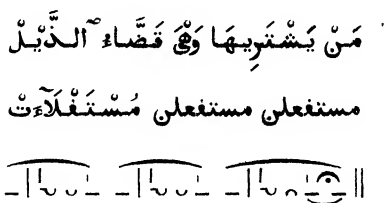 مَنْ يَشْتَرِيهَا وَهْىَ قَضَّاءُ الذَّيْلْ
مستفعلن مستفعلن مُسْتَفْلَآتْ